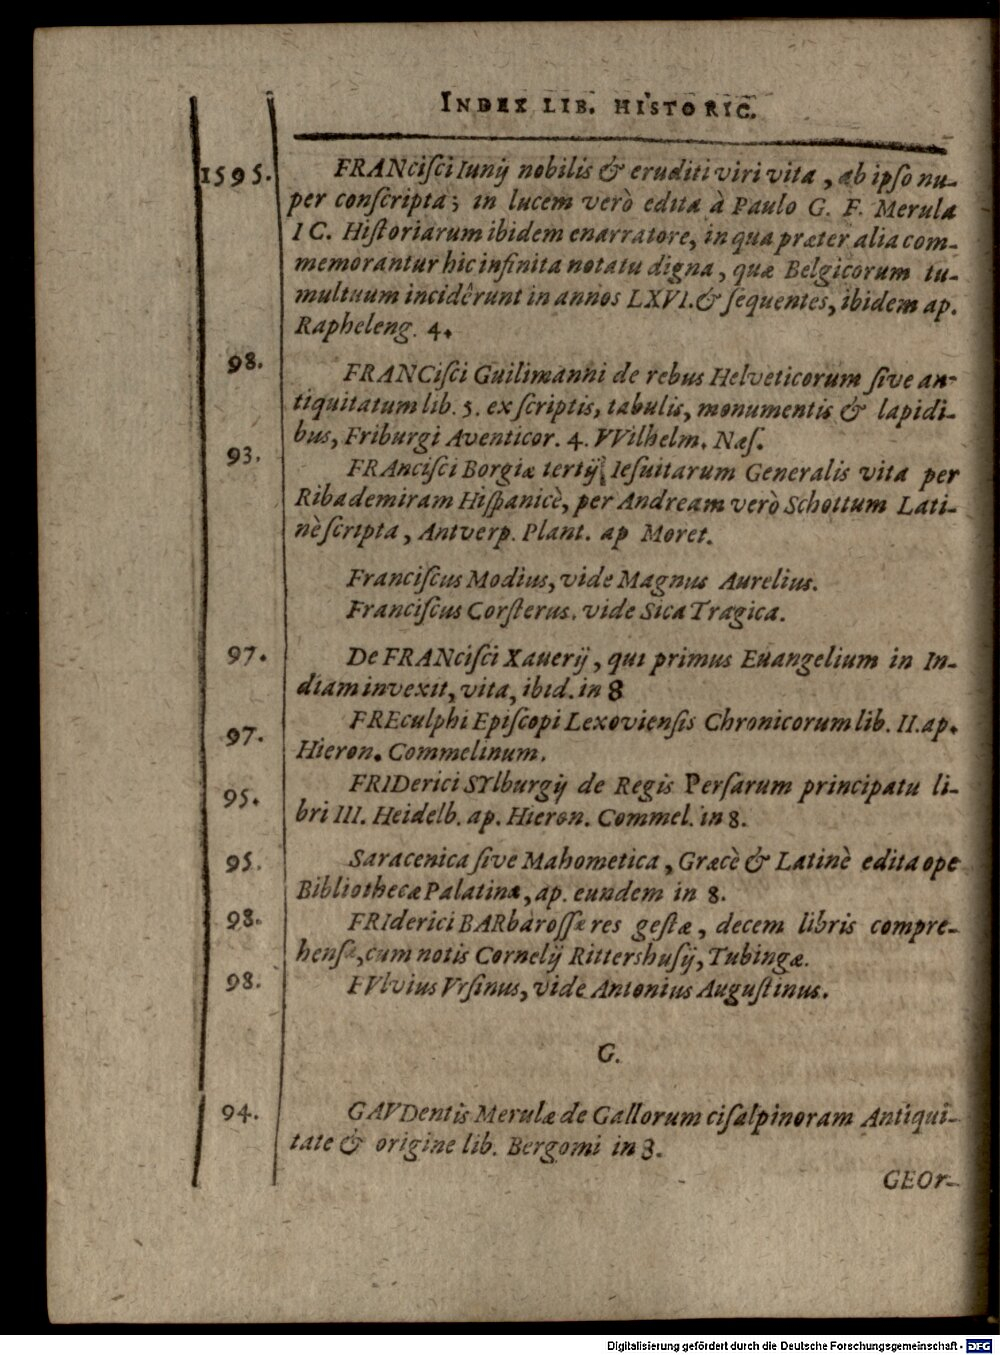 INDEX LIB. HISTORIC.
1595. FRANciſci Iunij nobilis & eruditi viri vita, ab ipſo nu-
per conſcripta; in lucem verò edita à Paulo G. F. Merula
I C. Hiſtoriarum ibidem enarratore, in qua præter alia com-
memorantur hic infinita notatu digna, quæ Belgicorum tu-
multuum incidêrunt in annos LXVI. & ſequentes, ibidem ap.
Rapheleng. 4.
98. FRANCiſci Guilimanni de rebus Helveticorum ſive an-
tiquitatum lib. 5. ex ſcriptis, tabulis, monumentis & lapidi-
bus, Friburgi Aventicor. 4. VVilhelm. Næſ.
93. FRAnciſci Borgiæ tertij Ieſuitarum Generalis vita per
Ribademiram Hiſpanicè, per Andream verò Schottum Lati-
nè ſcripta, Antverp. Plant. ap Moret.
Franciſcus Modius, vide Magnus Aurelius.
Franciſcus Corſterus. vide Sica Tragica.
97. De FRANciſci Xauerij, qui primus Euangelium in In-
diam invexit, vita, ibid. in 8
97. FREculphi Epiſcopi Lexovienſis Chronicorum lib. II. ap.
Hieron. Commelinum.
95. FRIDerici SYlburgij de Regis Perſarum principatu li-
bri III. Heidelb. ap. Hieron. Commel. in 8.
95. Saracenica ſive Mahometica, Græcè & Latinè edita ope
Bibliothecæ Palatinæ, ap. eundem in 8.
98. FRIderici BARbaroſſæ res geſtæ, decem libris compre-
henſæ, cum notis Cornelij Rittershuſij, Tubingæ.
98. FVlvius Vrſinus, vide Antonius Auguſtinus.
G.
94. GAVDentis Merulæ de Gallorum ciſalpinoram Antiqui-
tate & origine lib. Bergomi in 8.
GEOr-
Digitalisierung gefördert durch die Deutsche Forschungsgemeinschaft - DFG